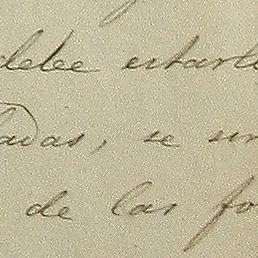 debe estarl
ladas, se un
de las fo